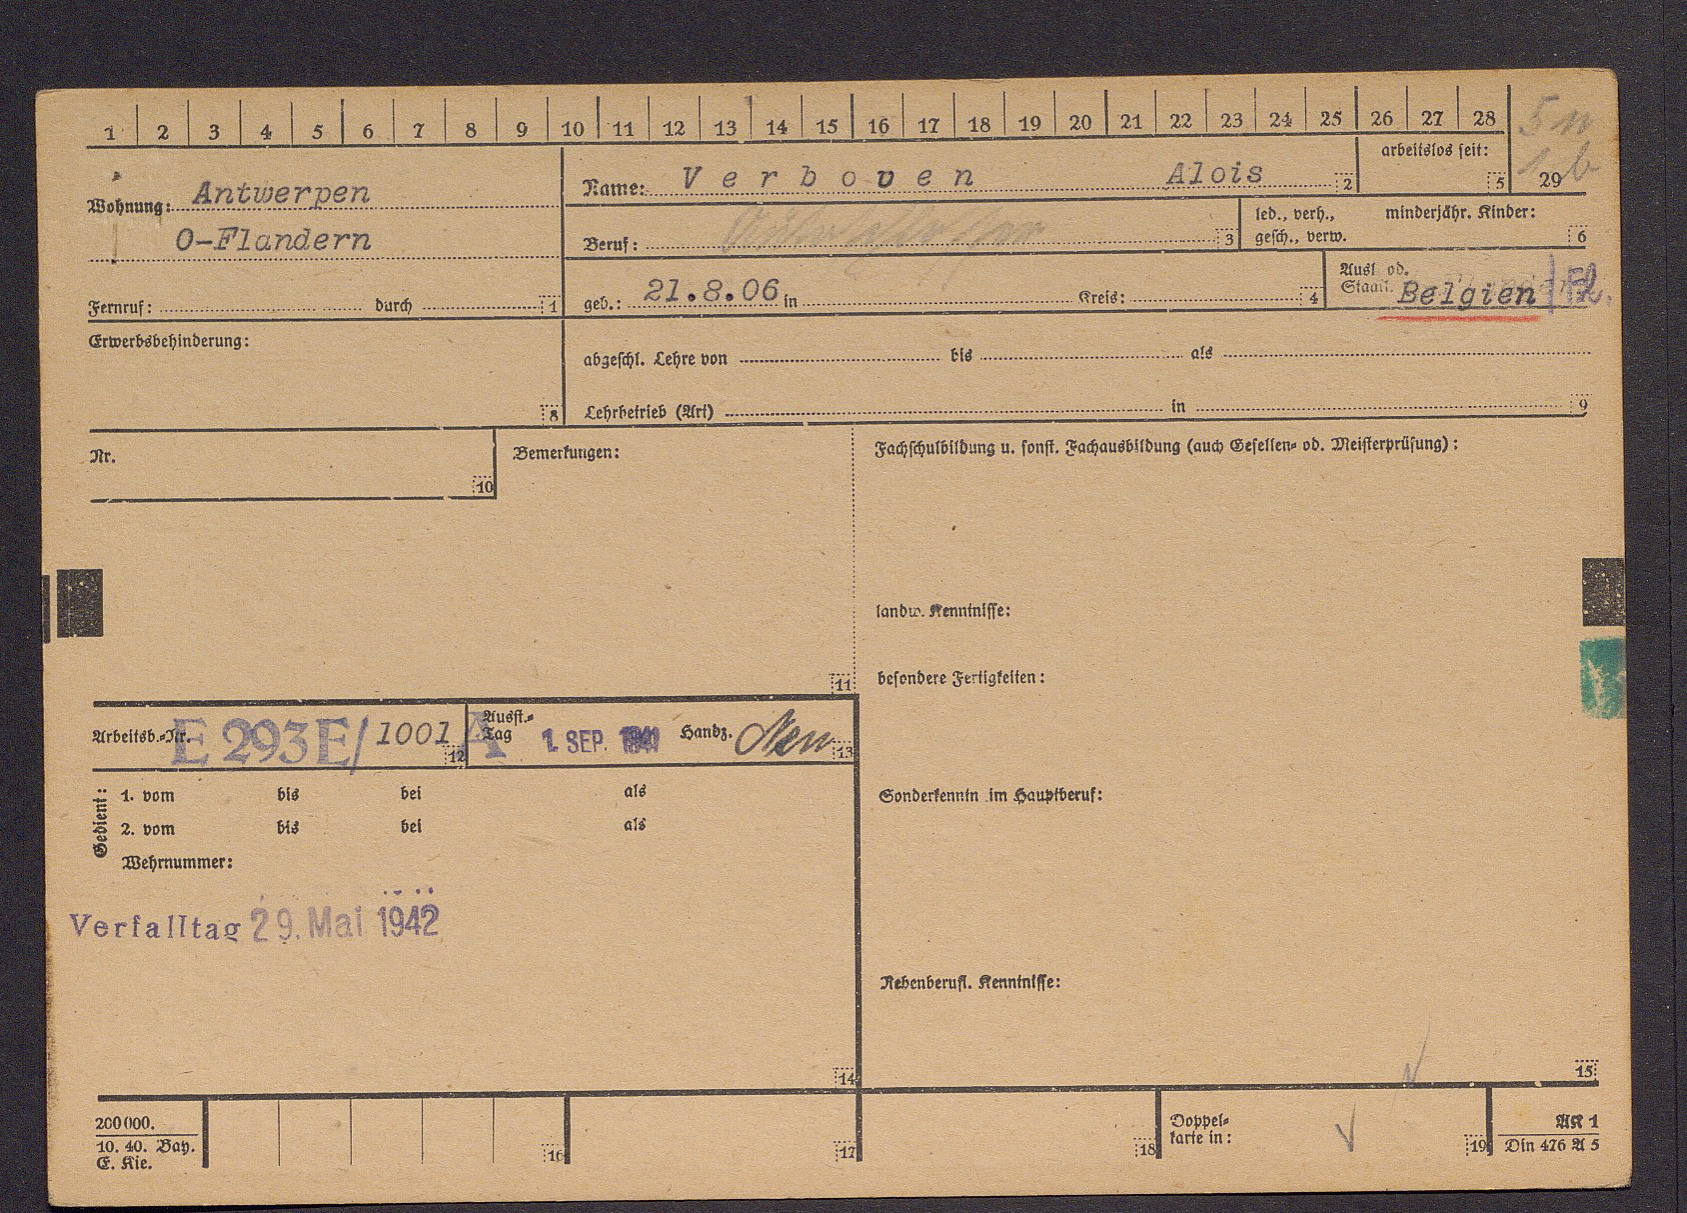 1 2 3 4 5 6 7 8 9 10 11 12 13 14 15 16 17 18 19 20 21 22 23 24 25 26 27 28
5
1 b
29
arbeitslos seit: 5
Wohnung: Antwerpen
O-Flandern
Fernruf: durch 1
Name: Verboven Alois 2
Beruf: 3
led., verh., minderjähr. Kinder:
gesch., verw. 6
geb.: 21.8.06 in Kreis: 4
Ausl. od.
Staatl. Belgien Fl.
Erwerbsbehinderung:
8
abgeschl. Lehre von bis als
Lehrbetrieb (Art) in 9
Nr.
10
Bemerkungen:
11
Fachschulbildung u. sonst. Fachausbildung (auch Gesellen- od. Meisterprüfung):
landw. Kenntnisse:
besondere Fertigkeiten:
Sonderkenntn im Hauptberuf:
Nebenberufl. Kenntnisse:
15
Arbeitsb.-Nr. E 293E/ 1001 A 12
Ausst.-
Tag 1. SEP. 1941 Handz. 13
Gedient:
1. vom bis bei als
2. vom bis bei als
Wehrnummer:
Verfalltag 29. Mai 1942
14
200000.
10. 40. Bay.
E. Kie.
16
17
18
Doppel-
karte in: 19
AK 1
Din 476 A 5